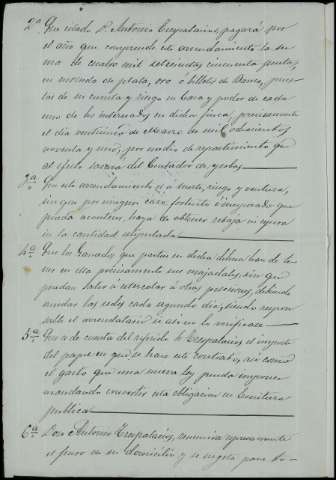 2ª Que citado D. Antonio Trespalacios, pagará por
el año que comprende este arrendamiento la su-
ma de cuatro mil setecientas cincuenta pesetas,
en moneda de plata, oro ó billetes de Banco, pues-
tas de su cuenta y riesgo en Casa y poder de cada
uno de los interesados en dicha finca, precisamente
el dia veinticinco de Marzo de mil ochocientos
noventa y uno, por medio de repartimiento que
al efecto hará el Contador de yerbas.
3ª Que este arrendamiento es á suerte, riesgo y ventura,
sin que por ningun caso fortuito ó inesperado que
pueda acontecer, haya de obtener rebaja ni espera
en la cantidad estipulada.
4ª Que los Ganados que pasten en dicha dehesa han de te-
ner en ella precisamente sus majadales, sin que
puedan salir á estercolar á otras posesiones, debiendo
mudar las redes cada segundo dia, siendo respon-
sable el arrendatario si asi no lo verificase
5ª Que es de cuenta del referido Sr. Trespalacios el importe
del papel en que se hace este contrato, asi como
el gasto que una nueva ley pueda imponer
mandando convertir esta obligacion en Escritura
publica
6ª Don Antonio Trespalacios, renuncia expresamente
el fuero de su domicilio y se sujeta para to-